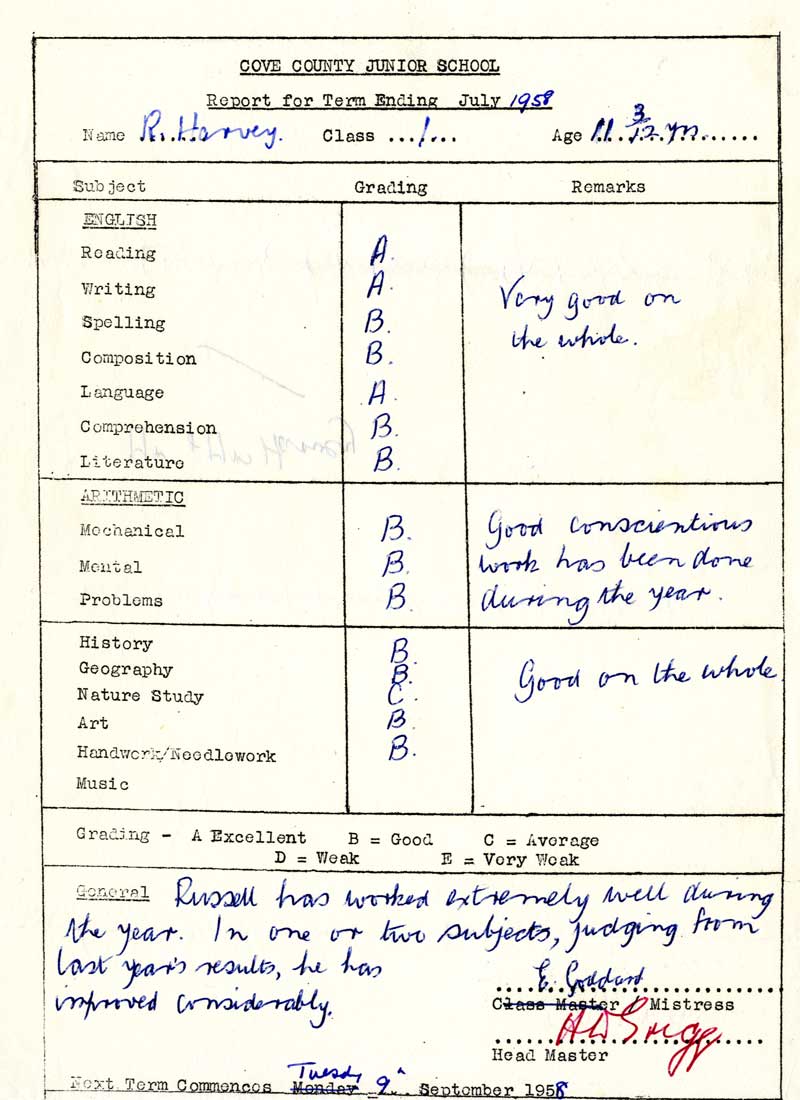 COVE COUNTY JUNIOR SCHOOL
Report for Term Ending July 1958
Name R. Harvey. Class ...1... Age 11 3/12 yrs.
Subject Grading Remarks
ENGLISH
Reading A.
Writing A.
Very good on
Spelling B.
the whole.
Composition B.
Language A.
Comprehension B.
Literature B.
ARITHMETIC
Mechanical B. Good conscientious
Mental B. work has been done
Problems B. during the year.
History B.
Geography B. Good on the whole
Nature Study C.
Art B.
Handwork/Needlework B.
Music
Grading - A Excellent B = Good C = Average
D = Weak E = Very Weak
General Russell has worked extremely well during
the year. In one or two subjects, judging from
last year's results, he has
E. Goddard
improved considerably.
Class Master / Mistress
Head Master
Next Term Commences Monday Tuesday 9th September 1958